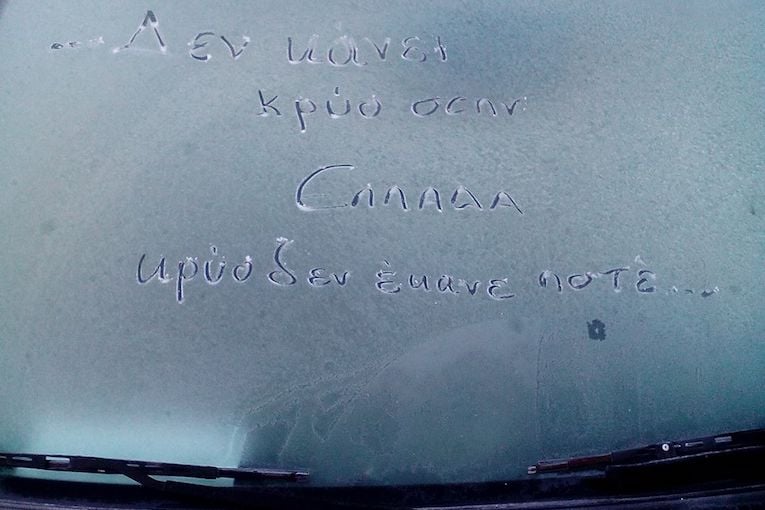 ...Δεν κάνει
κρύο στην
Ελλάδα
κρύο δεν έκανε ποτέ...